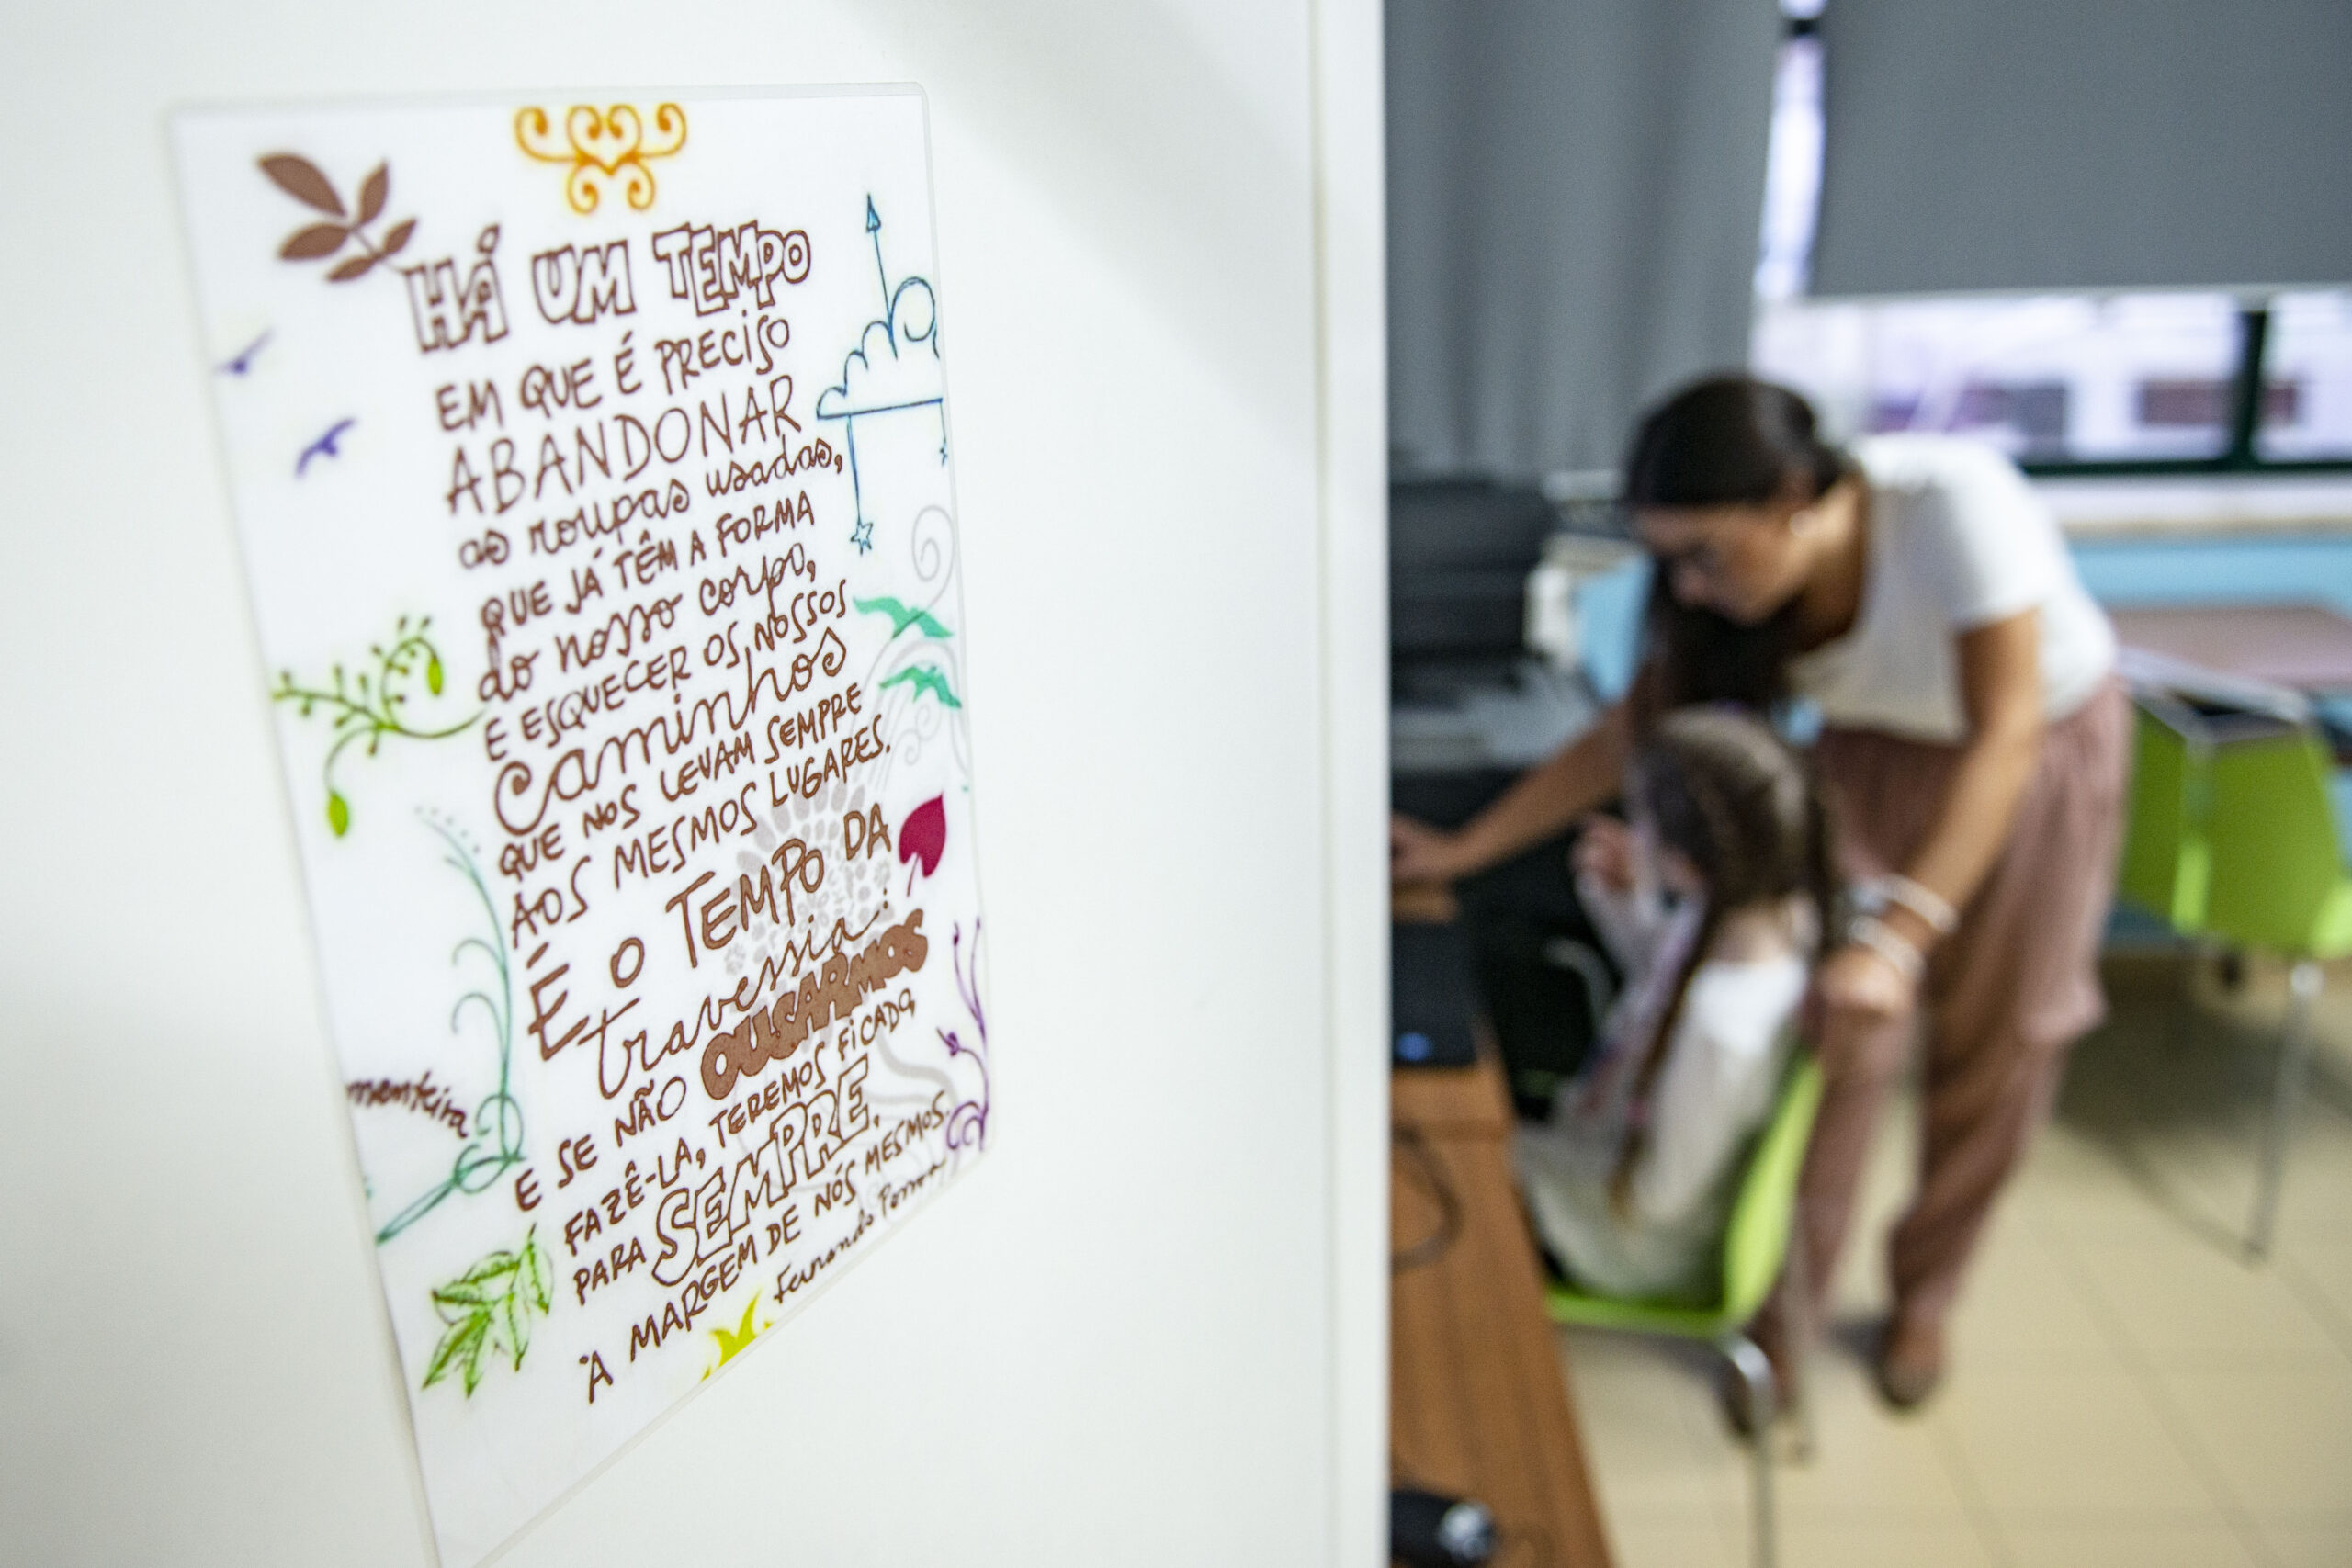 HÁ UM TEMPO
EM QUE É PRECISO
ABANDONAR
as roupas usadas,
QUE JÁ TÊM A FORMA
do nosso corpo,
E ESQUECER OS NOSSOS
caminhos
QUE NOS LEVAM SEMPRE
AOS MESMOS LUGARES.
É O TEMPO DA
travessia:
E SE NÃO OUSARMOS
FAZÊ-LA, TEREMOS FICADO,
PARA SEMPRE,
À MARGEM DE NÓS MESMOS.
Fernando Pessoa
menteira